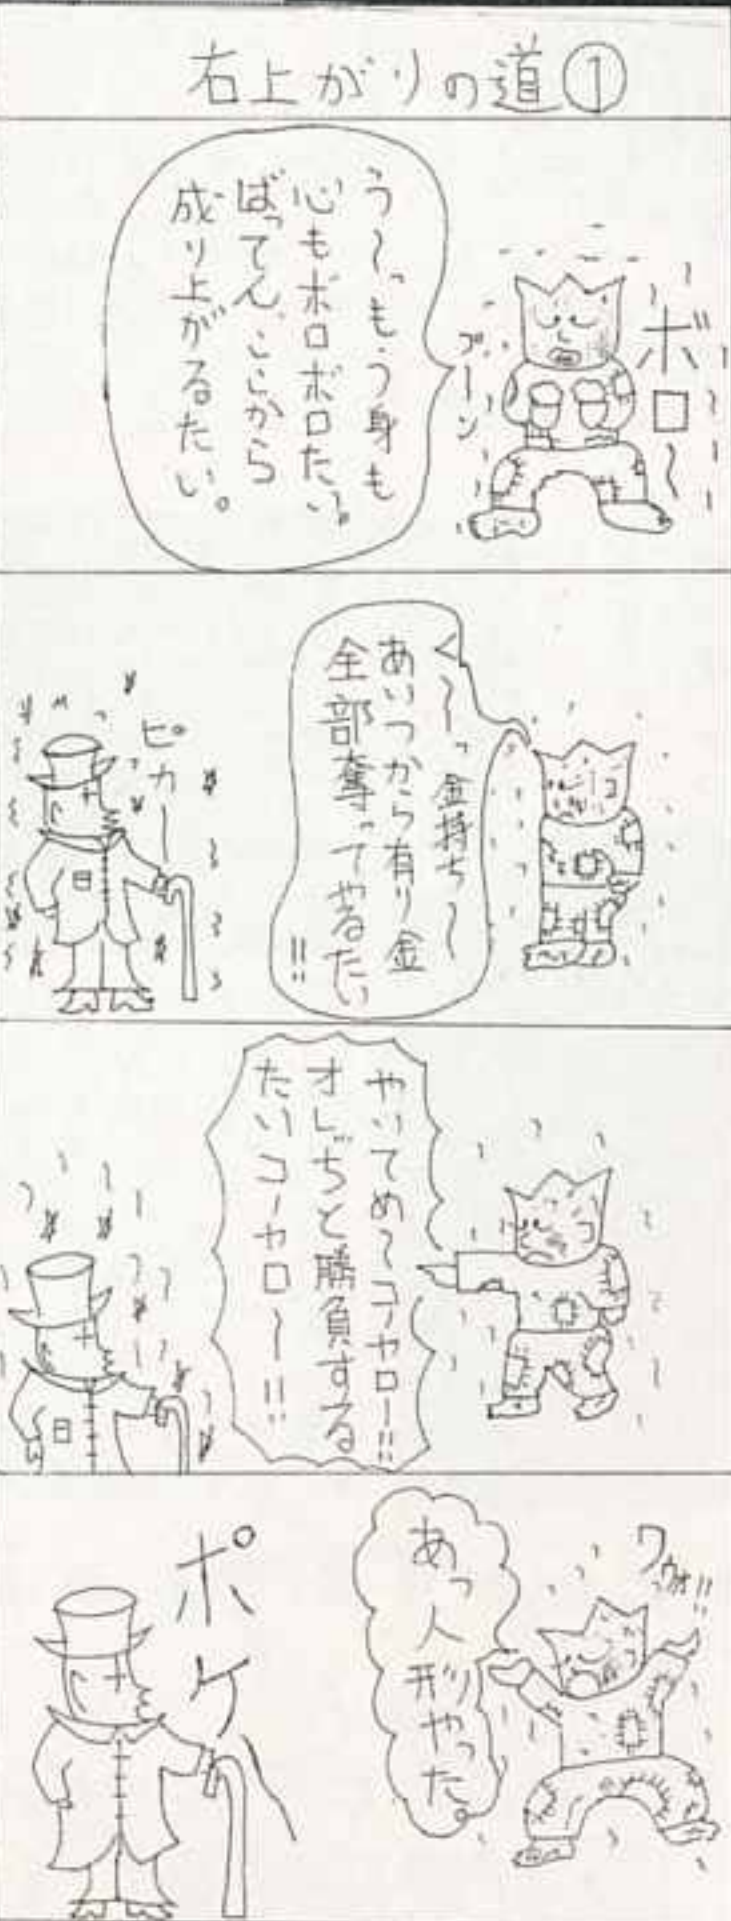 右上がりの道①
ボロ〜
プーン
う〜っもう身も
心もボロボロたい。
ばってん、ここから
成り上がるたい。
く〜っ金持ち〜
あいつから有り金
全部奪ってやるたい
!!
ピカー
やいてめ〜コノヤロー!!
オレぢと勝負する
たいコノヤロー!!
ワウォ!!
あっ
人形やった。
ポケ〜